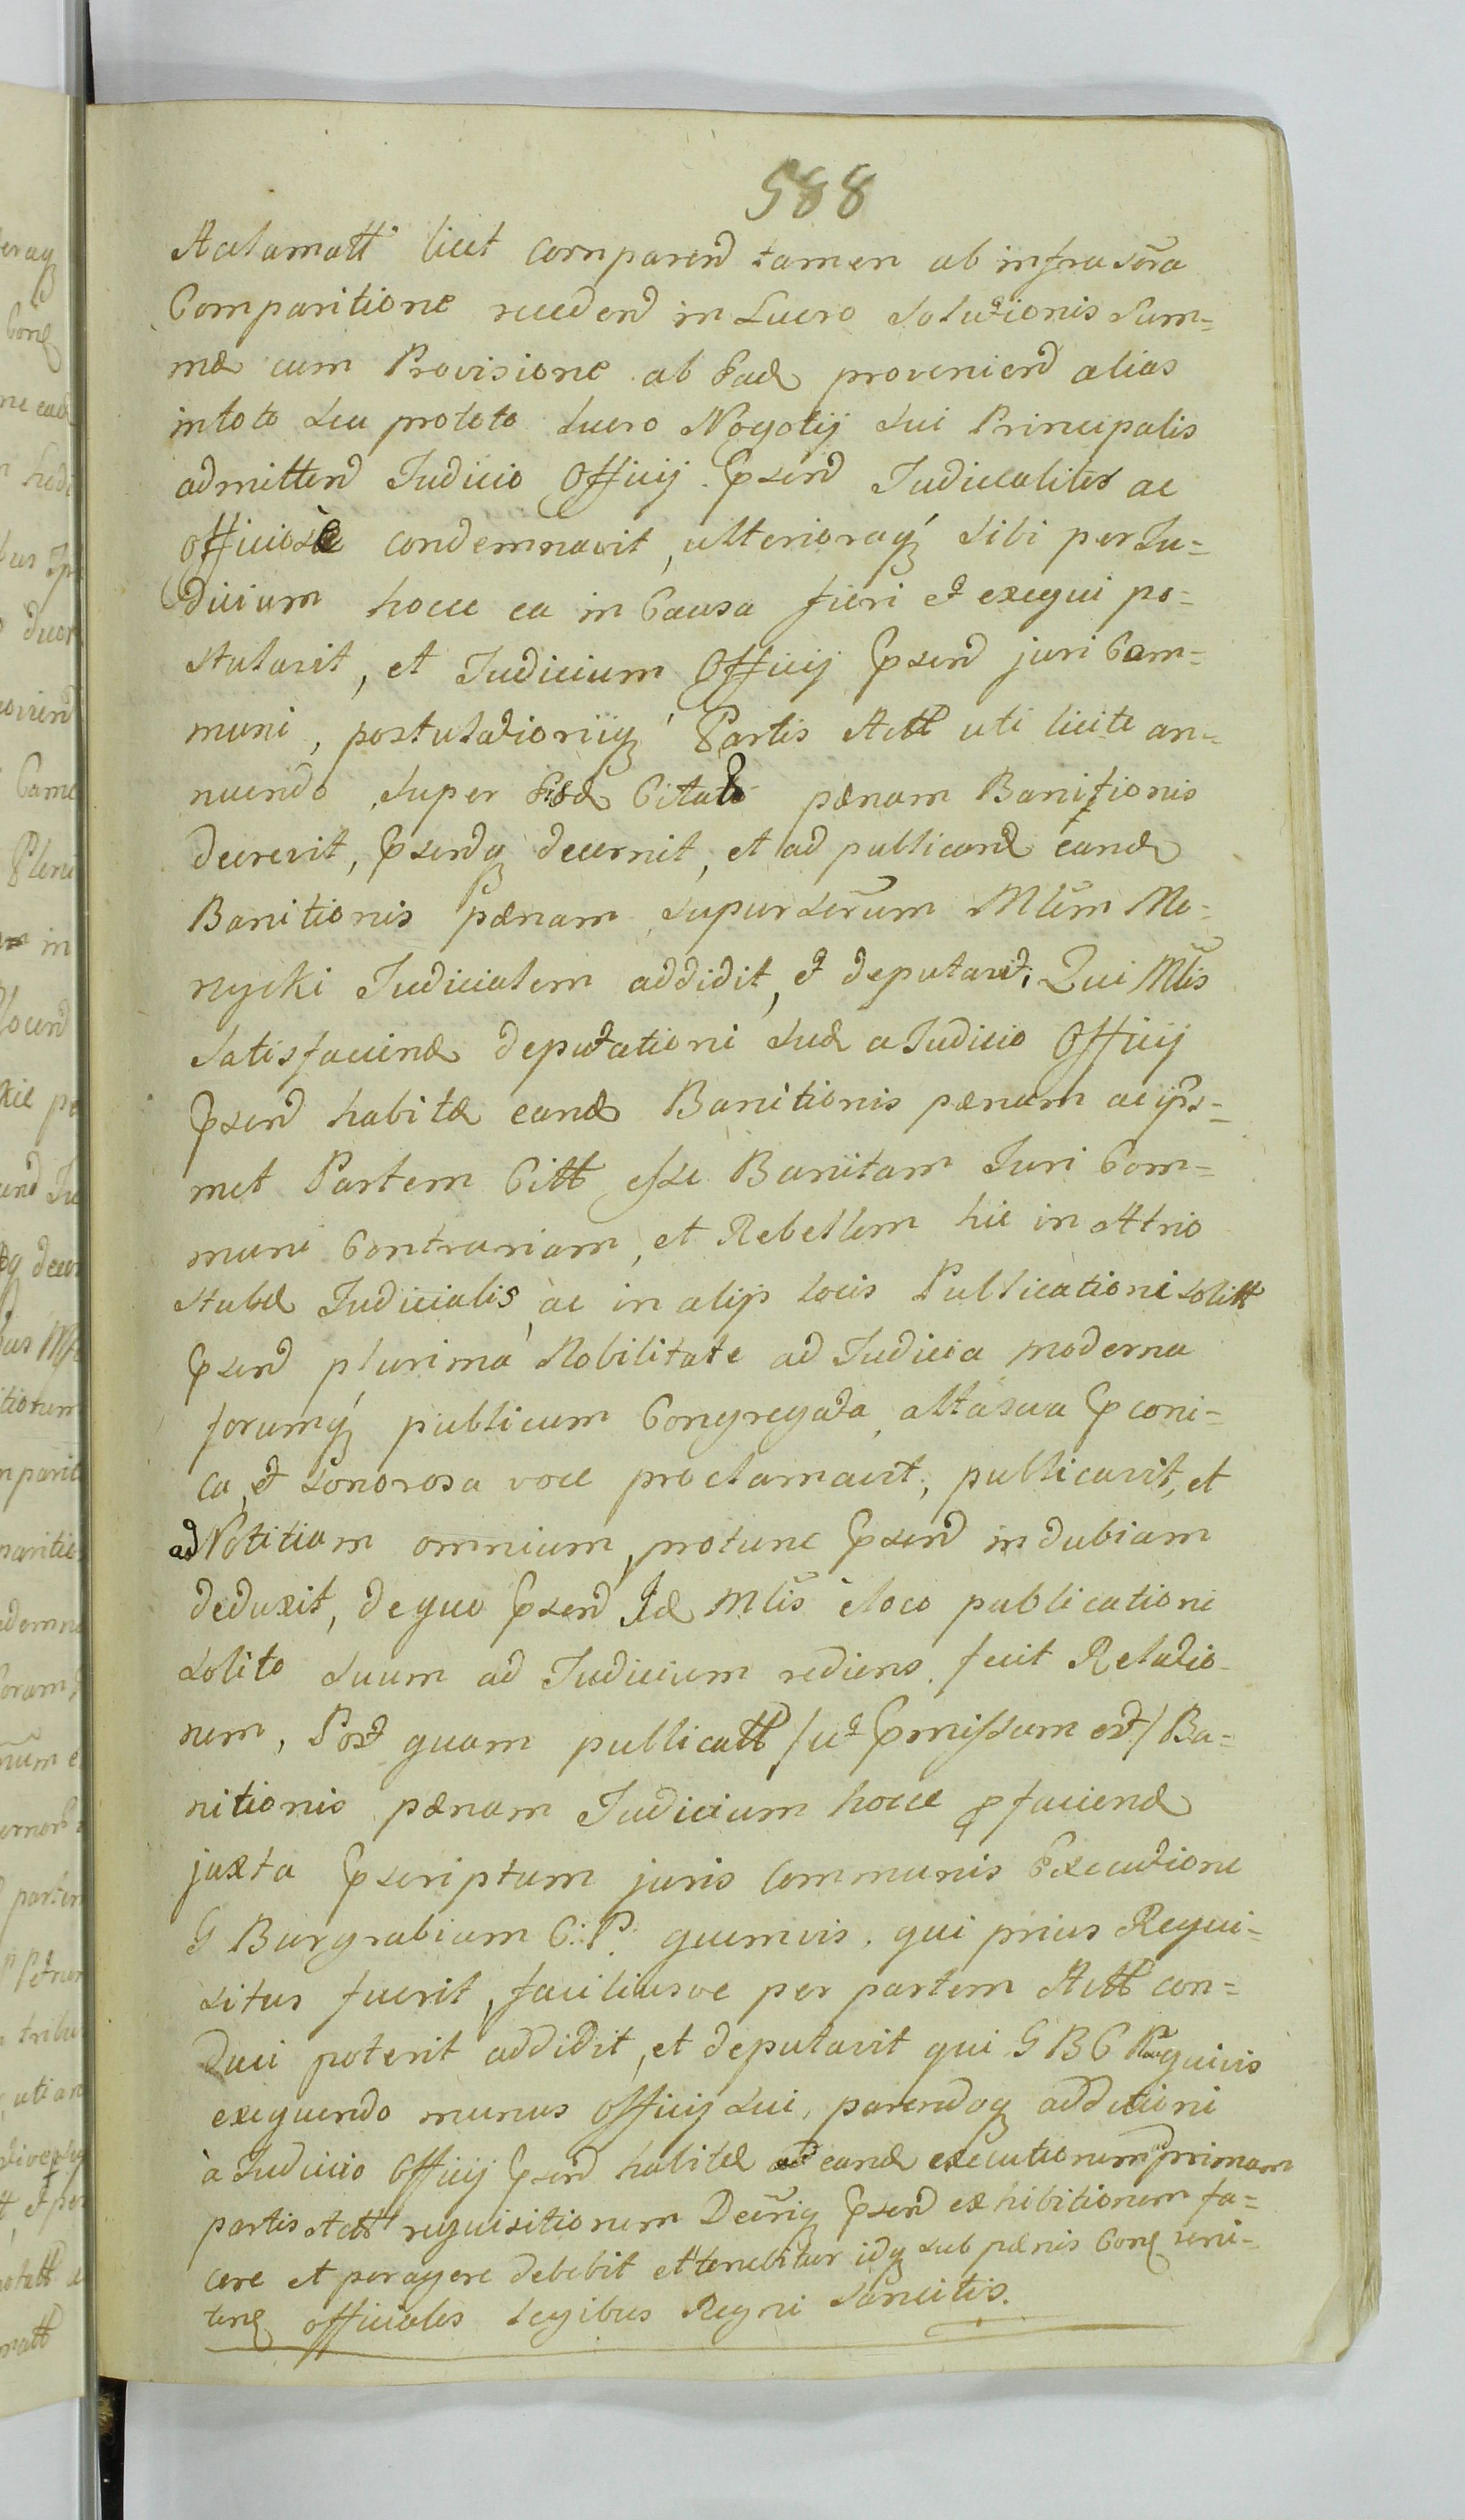 588
Aclamatt licet comparend tamen ab infrascra
Comparitione recedend in Lucro Solutionis Sum=
mæ cum Provisione ab Ead proveniend alias
in toto seu pro toto lucro Negotij sui Principalis
admittend Judicio Officij Psend Judicealiter ac
officiosè condemnavit, ulterioraq́ sibi per Ju=
dicium hocce ea in Causa fieri et exequi po=
stulavit, et Judicium Officij Psend juri Com=
muni, postulationiiq́ Partis Actt uti licite an=
nuendo super Citato pænam Banitionis
decrevit, Psendq decernit, et ad publicand eand
Banitionis pænam supurscrum Mlm Me=
nycki Judicialem addidit, et deputavit, Qui Mlis
Satisfaciend deputationi suæ a Judicio Officij
Psend habitæ eand Banitionis pænam ac ips=
met Partem Citt esse Banitam Juri Com=
muni Contrariam, et Rebellem hic in Atrio
Stubæ Judicialis, ac in alijs locis Publicationi solitt
Psend plurima Nobilitate ad Judicia moderna
forumq́ publicum Congregata, alta sua Pconi=
ca, et sonorosa voce proclamavit, publicavit, et
ad Notitiam omnium, protunc Psend indubiam
deduxit, dequo Psend Id Mlis è loco publicationi
Solito suum ad Judicium rediens fecit Relatio=
nem, Post quam publicatt /ut Pmissum est/ Ba=
nitionis pænam Judicium hocce p faciend
juxta Pscriptum juris Communis Executione
G Burgrabium C: P: quemvis, qui prius Requi=
situs fuerit, faciliusve per partem Actt con=
duci poterit addidit, et deputavit qui G B C P quivis
exequendo munus officij sui, parendoq additioni
à Judicio Officij Psend habitæ ad eand executionem primam
partis Actt requisitionem Decriq Psend exhibitionem fa=
cere et peragere debebit et tenebitur idq sub pænis Conq reni=
tend officiales Legibus Regni Sancitis.